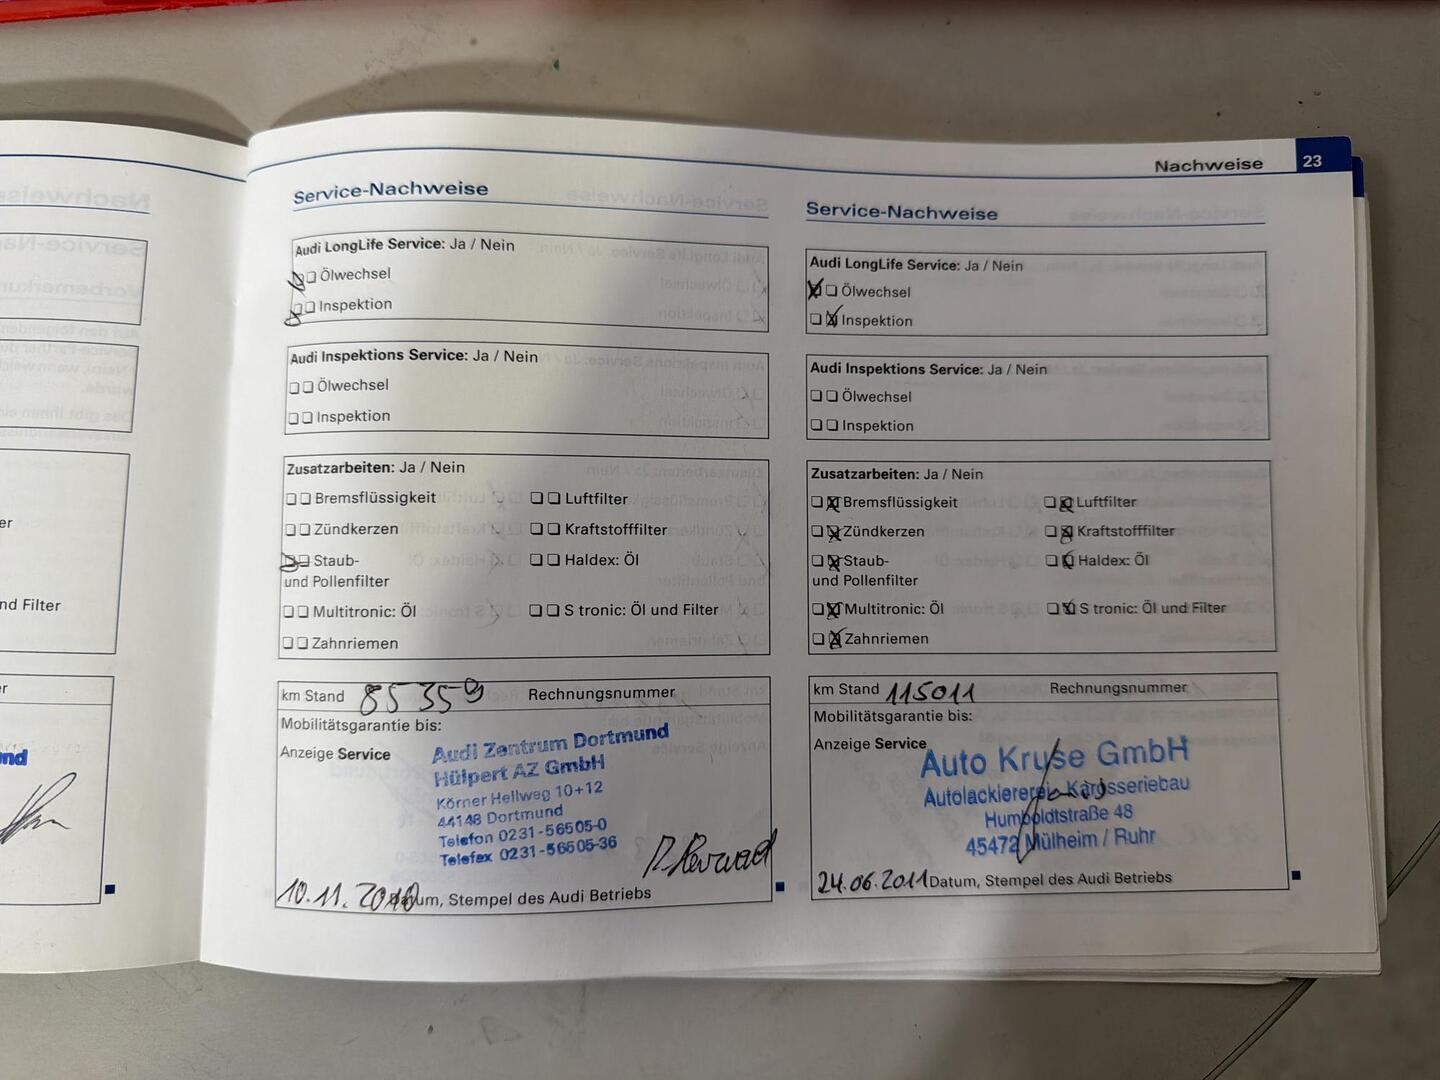 Nachweise 23
Service-Nachweise
Audi LongLife Service: Ja / Nein
Ölwechsel
Inspektion
Audi Inspektions Service: Ja / Nein
Ölwechsel
Inspektion
Zusatzarbeiten: Ja / Nein
Bremsflüssigkeit Luftfilter
Zündkerzen Kraftstofffilter
Staub- Haldex: Öl
und Pollenfilter
Multitronic: Öl S tronic: Öl und Filter
Zahnriemen
km Stand 85 359 Rechnungsnummer
Mobilitätsgarantie bis:
Anzeige Service
Audi Zentrum Dortmund
Hülpert AZ GmbH
Körner Hellweg 10+12
44143 Dortmund
Telefon 0231-56505-0
Telefax 0231-56505-36
10.11.2010 Datum, Stempel des Audi Betriebs
Service-Nachweise
Audi LongLife Service: Ja / Nein
Ölwechsel
Inspektion
Audi Inspektions Service: Ja / Nein
Ölwechsel
Inspektion
Zusatzarbeiten: Ja / Nein
Bremsflüssigkeit Luftfilter
Zündkerzen Kraftstofffilter
Staub- Haldex: Öl
und Pollenfilter
Multitronic: Öl S tronic: Öl und Filter
Zahnriemen
km Stand 115011 Rechnungsnummer
Mobilitätsgarantie bis:
Anzeige Service
Auto Kruse GmbH
Autolackiererei, Karosseriebau
Humboldtstraße 48
45472 Mülheim / Ruhr
24.06.2011 Datum, Stempel des Audi Betriebs